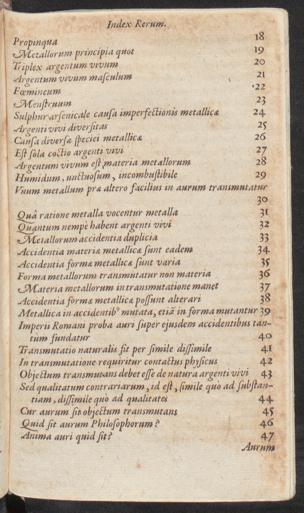 Index Rerum.
Propinqua 18
Metallorum principia quot 19
Triplex argentum vivum 20
Argentum vivum masculum 21
Fœmineum 22
Menstruum 23
Sulphur arsenicale causa imperfectionis metallicæ 24
Argenti vivi diversitas 25
Causa diversæ speciei metallicæ 26
Est sola coctio argenti vivi 27
Argentum vivum est materia metallorum 28
Humidum, unctuosum, incombustibile 29
Vnum metallum præ altero facilius in aurum transmutatur
30
Quâ ratione metalla vocentur metalla 31
Quantum nempè habent argenti vivi 32
Metallorum accidentia duplicia 33
Accidentia materiæ metallicæ sunt eadem 34
Accidentia formæ metallicæ sunt varia 35
Forma metallorum transmutatur non materia 36
Materia metallorum in transmutatione manet 37
Accidentia formæ metallicæ possunt alterari 38
Metallica in accidentib' mutata, etiā in forma mutantur 39
Imperii Romani proba auri super ejusdem accidentibus tan-
tum fundatur 40
Transmutatio naturalis fit per simile dissimile 41
In transmutatione requiritur contactus physicus 42
Objectum transmutans debet esse de natura argenti vivi 43
Sed qualitatum contrariarum, id est, simile quo ad substan-
tiam, dissimile quo ad qualitates 44
Cur aurum sit objectum transmutans 45
Quid sit aurum Philosophorum? 46
Anima auri quid sit? 47
Aurum